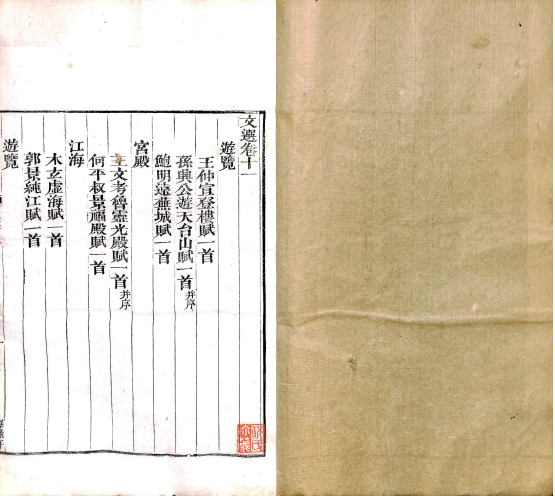 文選卷十一
遊覽
王仲宣登樓賦一首
孫興公遊天台山賦一首并序
鮑明遠蕪城賦一首
宮殿
王文考魯靈光殿賦一首并序
何平叔景福殿賦一首
江海
木玄虛海賦一首
郭景純江賦一首
遊覽